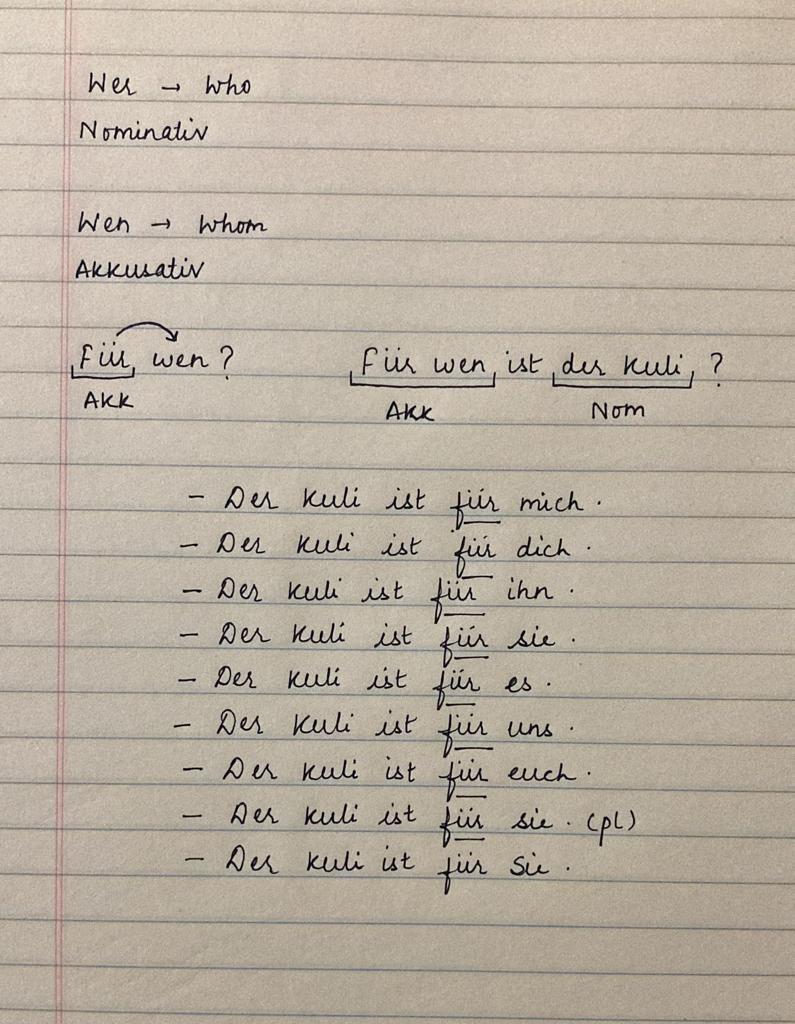 Wer → Who
Nominativ
Wen → Whom
Akkusativ
Für wen ? Für wen ist der Kuli ?
AKK AKK Nom
- Der Kuli ist für mich .
- Der Kuli ist für dich .
- Der Kuli ist für ihn .
- Der Kuli ist für sie .
- Der Kuli ist für es .
- Der Kuli ist für uns .
- Der Kuli ist für euch .
- Der Kuli ist für sie . (pl)
- Der Kuli ist für Sie .